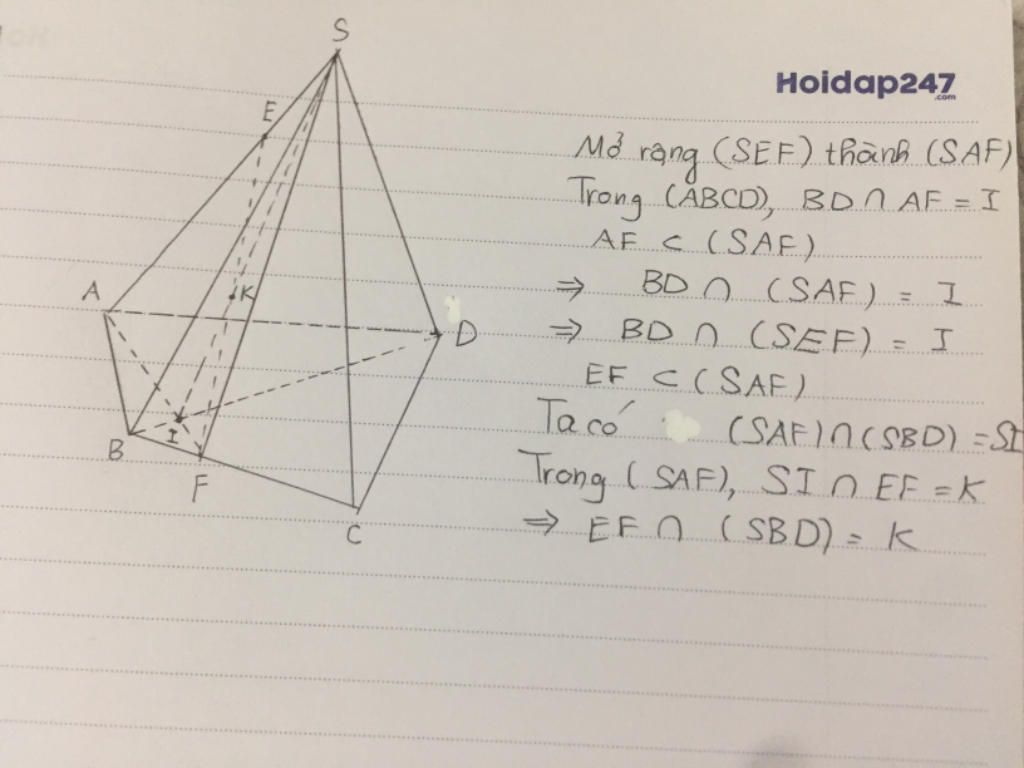 S
E
A
K
D
B
I
F
C
Hoidap247
.com
Mở rộng (SEF) thành (SAF)
Trong (ABCD), BD ∩ AF = I
AF ⊂ (SAF)
⇒ BD ∩ (SAF) = I
⇒ BD ∩ (SEF) = I
EF ⊂ (SAF)
Ta có (SAF) ∩ (SBD) = SI
Trong (SAF), SI ∩ EF = K
⇒ EF ∩ (SBD) = K